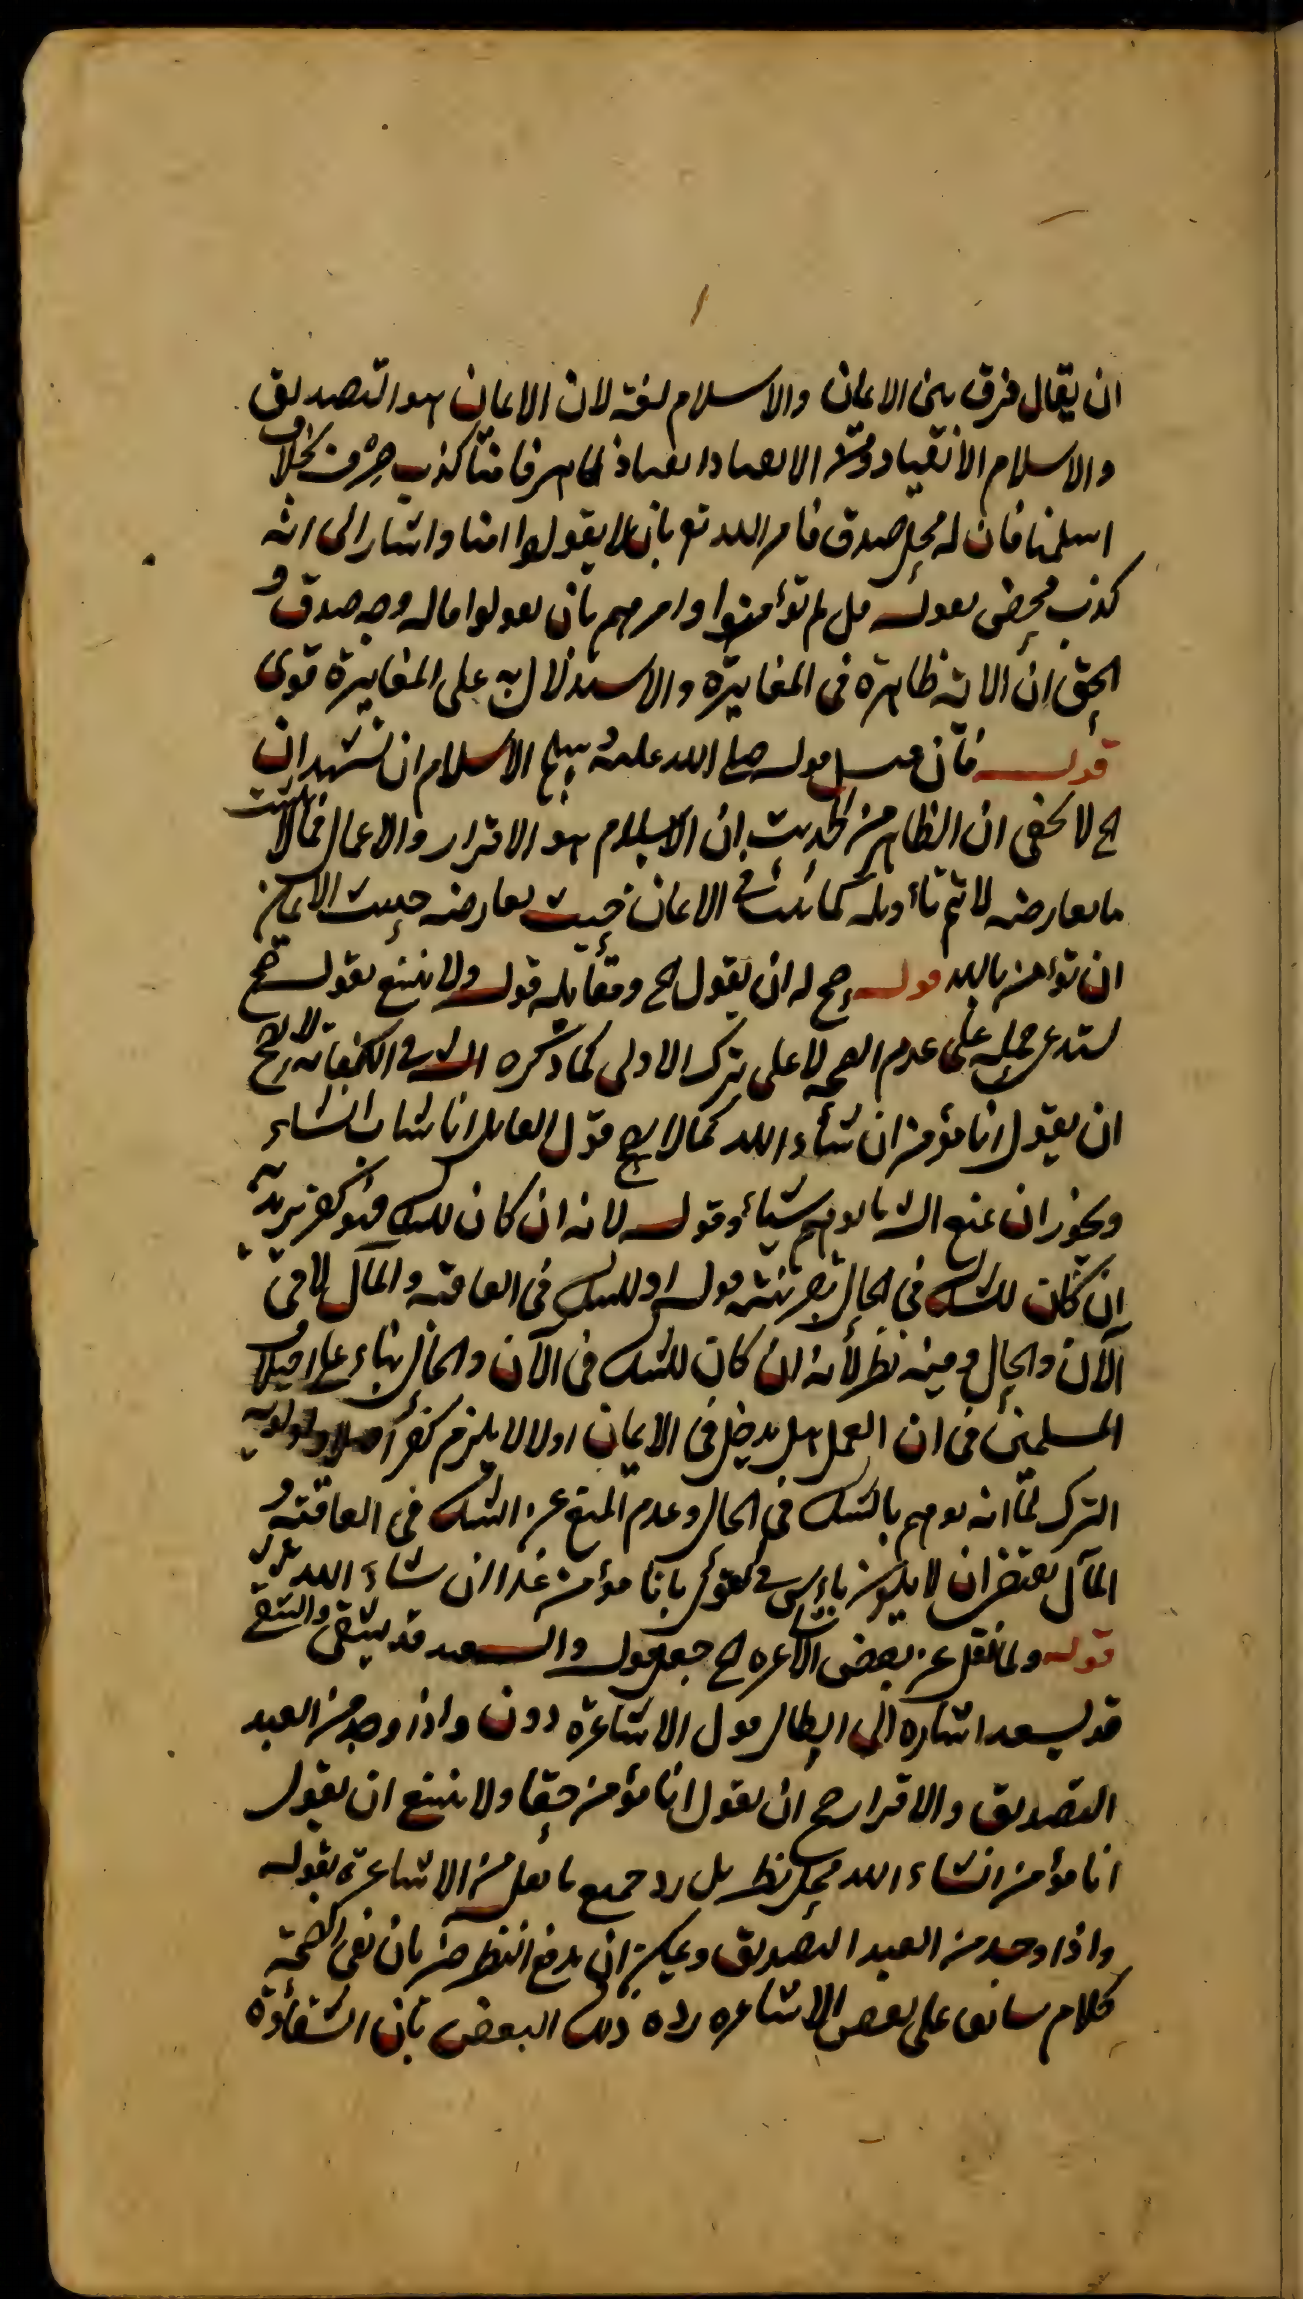 ان يقال فرق بين الايمان والاسلام لغة لان الايمان هو التصديق
والاسلام الانقياد الانقياد انقياد ظاهر فامنا كذب صرف بخلاف
اسلمنا فان له محل صدق فامر الله تع بان لا يقولوا امنا واشار الى انه
كذب محض بقوله قل لم تؤمنوا وامرهم بان يقولوا ما له وجه صدق و
الحق ان الاية ظاهرة في المغايرة والاستدلال به على المغايرة قوى
قوله فان قيل قوله صلى الله عليه وسلم الاسلام ان تشهد ان
الخ لا يخفى ان الظاهر من الحديث ان الاسلام هو الاقرار والاعمال فما لا يثبت
ما يعارضه لا يتم تأويله كما يثبت في الايمان حيث يعارضه حديث الايمان
ان تؤمن بالله قوله صح له ان يقول الخ ومقابله قوله ولا ينبغي بقوله صح
يستدعي حمله على عدم الصحة لا على ترك الاولى كما ذكره الش في الكفاية لا يصح
ان يقول انا مؤمن ان شاء الله كما لا يصح قول القايل انا شاب انشاء
ويجوز ان يمنع الش ما يوهم شيأ وقوله لانه ان كان للشك فهو كفر يريد به
ان كان للشك في الحال بقرينة قوله او للشك في العاقبة والمآل لا في
الآن والحال وفيه نظر لأنه ان كان للشك في الآن والحال بناء على اختلاف
المسلمين في ان العمل هل يدخل في الايمان او لا لا يلزم كفر اصلا واولوية
الترك لما انه يوهم بالشك في الحال وعدم المنع عن الشك في العاقبة و
المآل يقتضى ان لا يكون بأس في القول بانا مؤمن غدا ان شاء الله
قوله ولما نقل عن بعض الاشاعرة الخ جعل قوله والسعيد قد يشقى والشقي
قد يسعد اشارة الى ابطال قول الاشاعرة دون واذا وجد من العبد
التصديق والاقرار صح ان يقول انا مؤمن حقا ولا ينبغي ان يقول
انا مؤمن انشاء الله محل نظر بل رد جميع ما نقل من الاشاعرة بقوله
واذا وجد من العبد التصديق ويمكن ان يدفع النظر عنه بان نفى الصحة
كلام سابق على بعض الاشاعره رده ذلك البعض بان الشقاوة